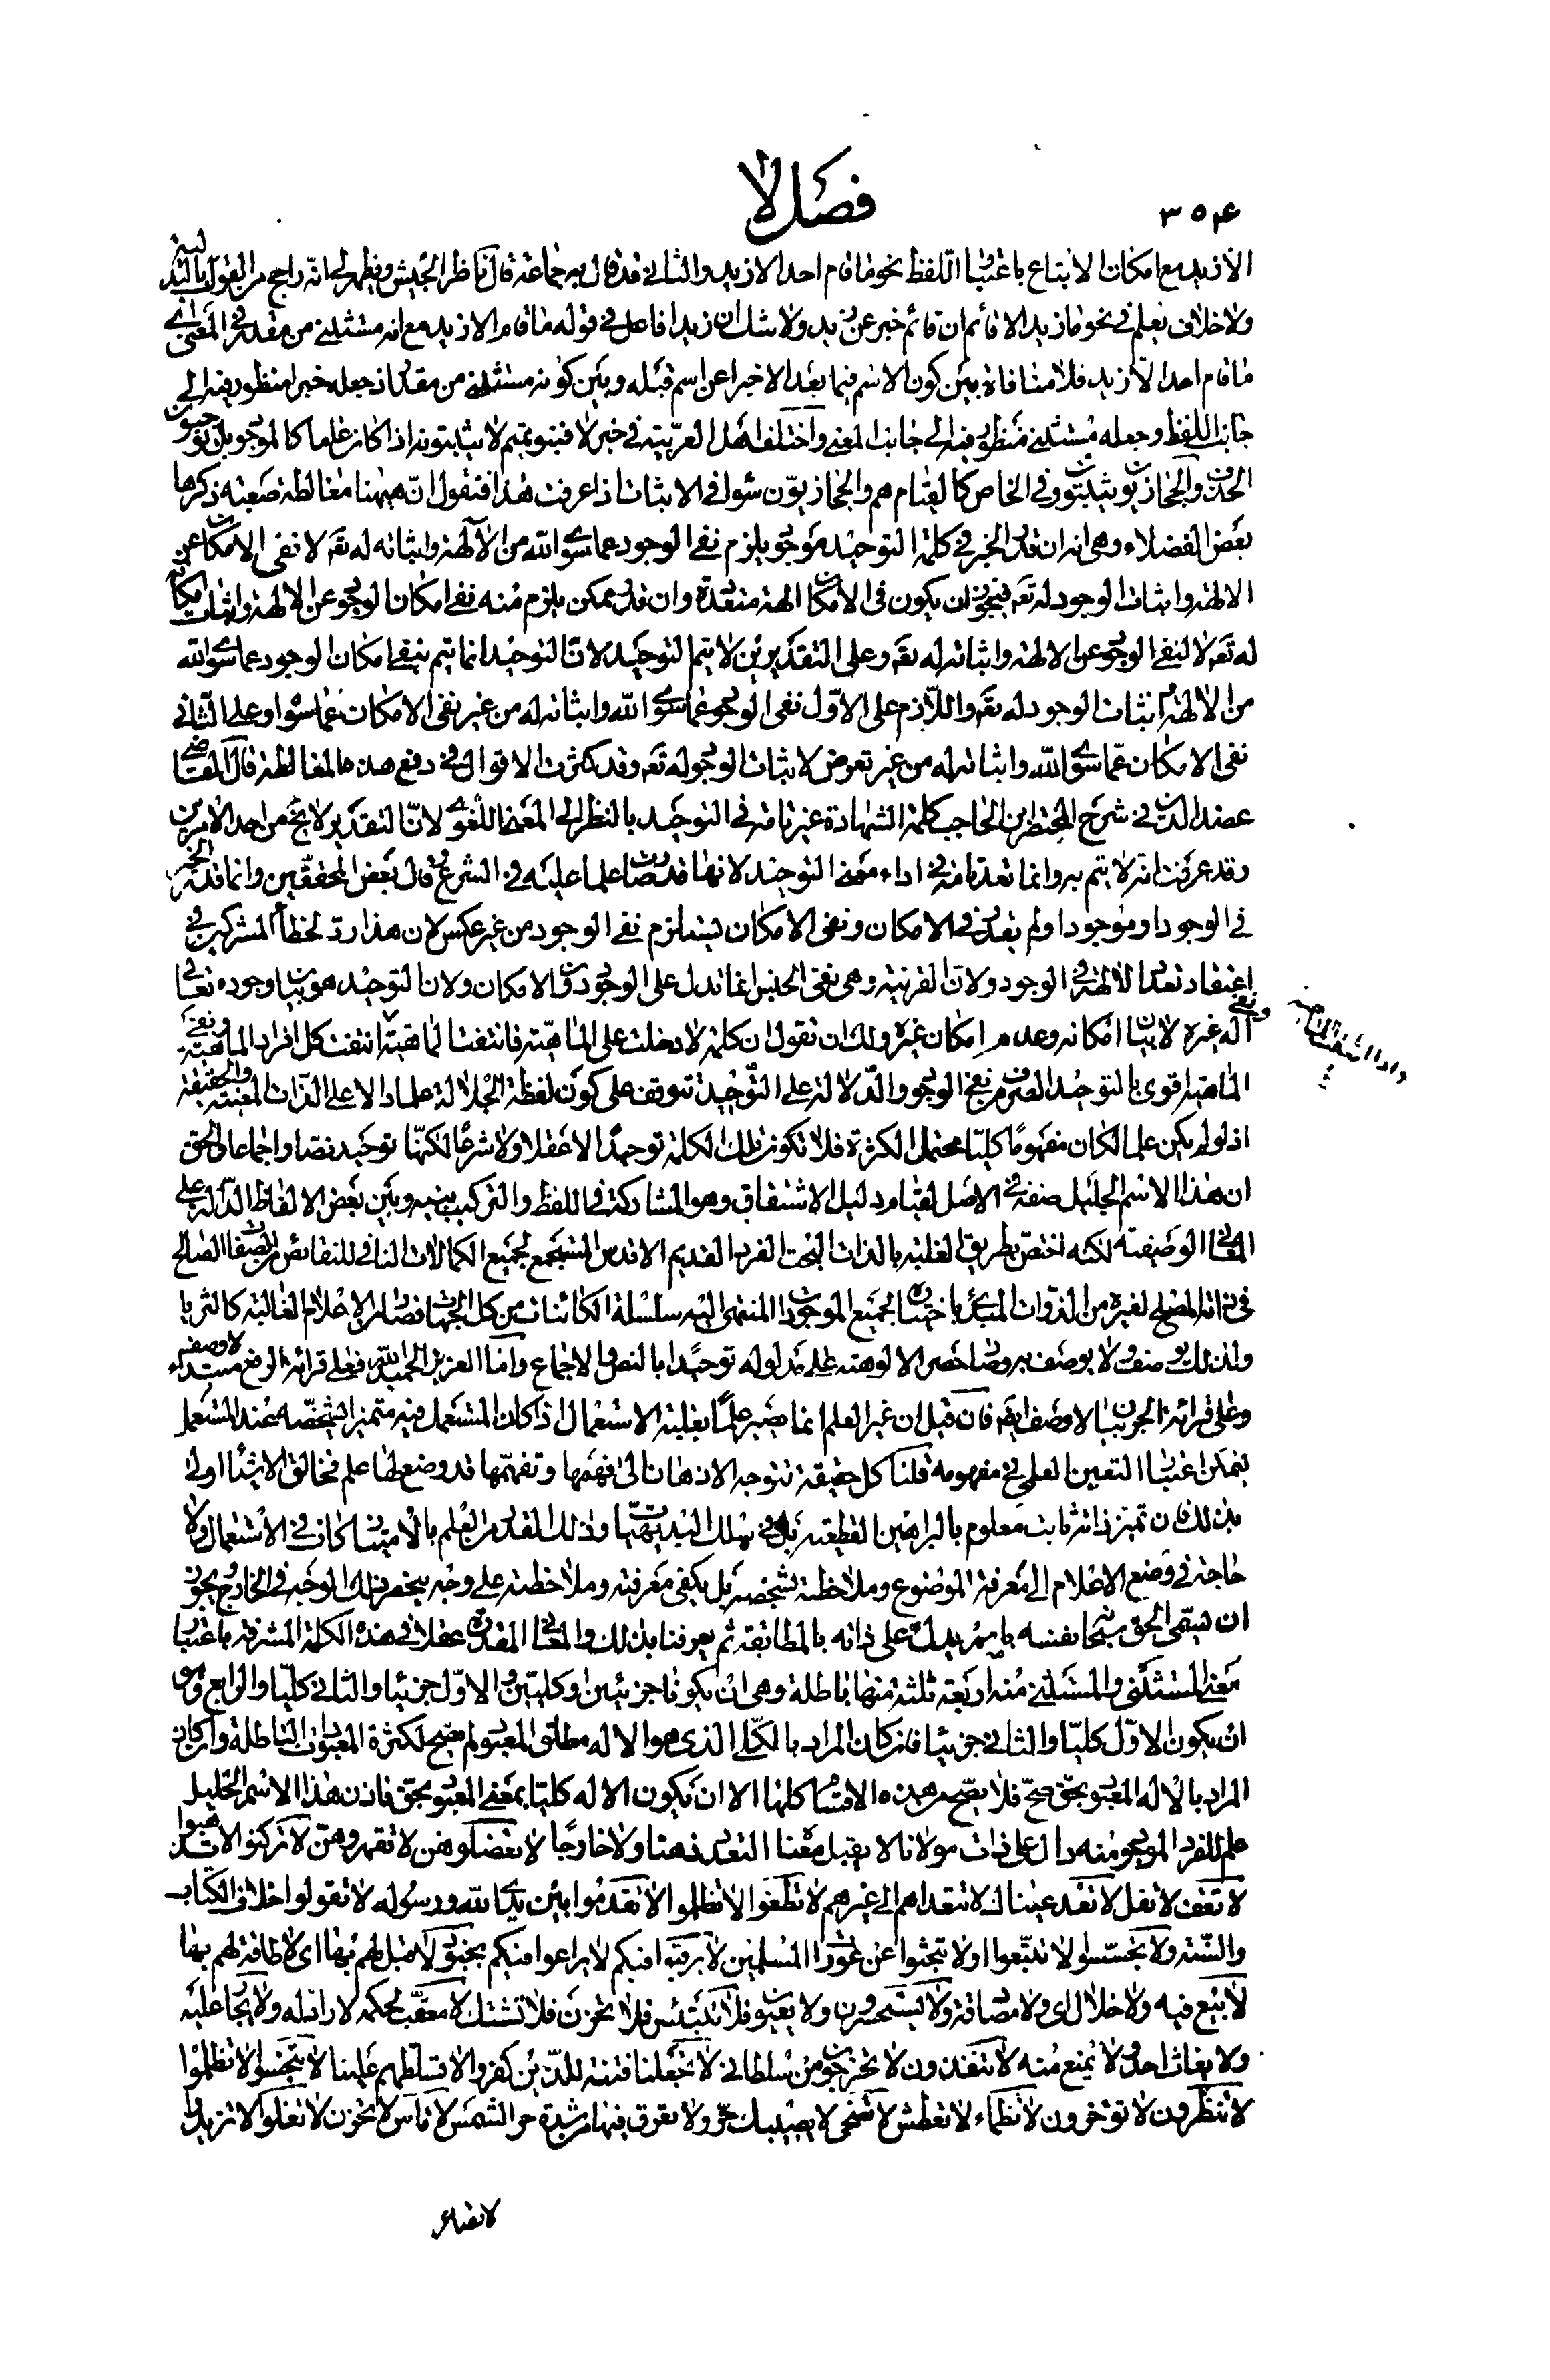 ٣٥٤
فصل لا
الا زيد مع امكان الاتباع باعتبار اللفظ نحو ما قام احد الا زيد والثاني قد قال به جماعة قال ناظر الجيش ويظهر لي انه راجح من القول بالبدلية
ولا خلاف يعلم في نحو ما زيد الا قائم ان قائم خبر عن زيد ولا شك ان زيدا فاعل في قوله ما قام الا زيد مع انه مستثنى من مقدر في المعنى اي
ما قام احد الا زيد فلا منافاة بين كون الاسم فيما بعد الا خبرا عن اسم قبله وبين كونه مستثنى من مقدر اذ جعله خبرا منظور فيه الى
جانب اللفظ وجعله مستثنى منظور فيه الى جانب المعنى واختلف اهل العربية في خبر لا فبنو تميم لا يثبتونه اذا كان عاما كالموجود بل يوجبون
الحذف والحجازيون يثبتون وفي الخاص كالقيام هم والحجازيون سواء في الاثبات اذا عرفت هذا فنقول ان ههنا مغالطة صعبة ذكرها
بعض الفضلاء وهي انه ان قدر الخبر في كلمة التوحيد موجود يلزم نفي الوجود عما سوى الله من الآلهة واثباته له تعه لا نفي الامكان عن
الالهة واثبات الوجود له تعه فيجوز ان يكون في الامكان الهة متعددة وان قدر ممكن يلزم منه نفي امكان الوجود عن الالهة واثبات امكانه
له تعه لا لنفي الوجود عن الالهة واثباته له تعه وعلى التقديرين لا يتم التوحيد لان التوحيد انما يتم بنفي امكان الوجود عما سوى الله
من الالهة واثبات الوجود له تعه واللازم على الاول نفي الوجود عما سوى الله واثباته له من غير نفي الامكان عما سواه وعلى الثاني
نفي الامكان عما سوى الله واثباته له من غير تعرض لاثبات الوجود له تعه وقد كثرت الاقوال في دفع هذه المغالطة قال القاضي
عضد الدين في شرح المختصر ابن الحاجب كلمة الشهادة غير تامة في التوحيد بالنظر الى المعنى اللغوي لان التقدير لا يخ من احد الامرين
وقد عرفت انه لا يتم به وانما تعد تامة في اداء معنى التوحيد لانها قد صارت علما عليه في الشرع وقال بعض المحققين وانما قدر الخبر
في الوجود او موجود او لم يقدر في الامكان ونفي الامكان يستلزم نفي الوجود من غير عكس لان هذا رد لخطأ المشركين في
اعتقاد تعدد الالهة في الوجود ولان القرينة وهي نفي الجنس انما تدل على الوجود دون الامكان ولان التوحيد هو بيان وجوده تعالى
ونفي اله غيره لا بيان امكانه وعدم امكان غيره ولك ان تقول ان كلمة لا دخلت على الماهية فانتفت الماهية انتفت كل افراد الماهية ونفي
الماهية اقوى بالتوحيد الصرف من نفي الوجود والدلالة على التوحيد تتوقف على كون لفظة الجلالة علما دالا على الذات المعينة والحقيقة
اذ لو لم يكن علما لكان مفهوما كليا محتمل الكثرة فلا تكون تلك الكلمة توحيدا لا عقلا ولا شرعا لكنها توحيد نصا واجماعا والحق
ان هذا الاسم الجليل صفة في الاصل لقيام دليل الاشتقاق وهو المشاركة في اللفظ والتركيب بينه وبين بعض الالفاظ الدالة على
المعاني الوصفية لكنه اختص بطريق الغلبة بالذات البحت الفرد القديم الاقدس المستجمع لجميع الكمالات النافي للنقائص من الصفات الصالح
في ذاته المصلح لغيره من الذوات المبدئ باختياره لجميع الموجودات المنتهى اليه سلسلة الكائنات من كل الجهات فصار من الاعلام الغالبة كالثريا
ولذلك يوصف ولا يوصف به وصار حصر الالوهية على مدلوله توحيدا بالنص والاجماع واما العزيز الحميد الله فعلى قرائة الرفع مبتداء لا وصف
وعلى قرائة الجر بيان لا وصف ايضا فان قيل ان غير العلم انما يصير علما بغلبة الاستعمال اذا كان المستعمل فيه متميزا بشخصه عند المستعمل
ليتمكن اعتبار التعين العلمي في مفهومه قلنا كل حقيقة تتوجه الاذهان الى فهمها وتفهمها قد وضع لها علم فخالق الاشياء اولى
بذلك فان تميز ذاته ثابت معلوم بالبراهين القطعية بل في سلك البديهيات وذلك القدر من العلم بالامتياز كاف في الاستعمال ولا
حاجة في وضع الاعلام الى معرفة الموضوع وملاحظة بشخصه بل يكفي معرفته وملاحظته على وجه ينحصر ذلك الوجه في الخارج يجوز
ان يسمى الحق سبحانه نفسه باسم يدل على ذاته بالمطابقة ثم يعرفنا بذلك والمعاني المقدرة عقلا في هذه الكلمة المشرفة باعتبار
معنى المستثنى والمستثنى منه اربعة ثلثة منها باطلة وهي ان يكونا جزئيين وكليين والاول جزئيا والثاني كليا والرابع وهو
ان يكون الاول كليا والثاني جزئيا فان كان المراد بالكلي الذي هو الاله مطلق المعبود لم يصح لكثرة المعبودات الباطلة وان كان
المراد بالاله المعبود بحق صح فلا يصح من هذه الاقسام كلها الا ان يكون الاله كليا بمعنى المعبود بحق فاذن هذا الاسم الجليل
علم للفرد الموجود منه دال على ذات مولانا لا يقبل معناه التعدد ذهنا ولا خارجا لا تعضلوهن لا تقهروهن لا تركنوا لا تذهبوا
لا تقف لا تقل لا تعد عيناك لا تتعداهم الى غيرهم لا تطغوا لا تظلموا لا تقدموا بين يدي الله ورسوله لا تقولوا خلاف الكتاب
والسنة ولا تجسسوا لا تتبعوا اولا تبحثوا عن عورات المسلمين لا يرقبوا فيكم لا يراعوا فيكم بجنود لا قبل لهم بها اي لا طاقة لهم بها
لا بيع فيه ولا خلال اي ولا مصادقة ولا يستحسرون ولا يعيون فلا تبتئس فلا تحزن فلا تشتك لا معقب لحكمه لا راد له ولا يجار عليه
ولا يغاث احد ولا يمنع منه لا تنفذون لا تخرجون من سلطاني لا تجعلنا فتنة للذين كفروا لا تسلطهم علينا لا يبخس لا تظلموا
لا تنظرون لا تؤخرون لا تظماء لا تعطش لا تضحى لا يصيبك حر ولا تعرق فيها من شدة حر الشمس لا تأس لا تحزن لا تغلوا لا تزيدوا